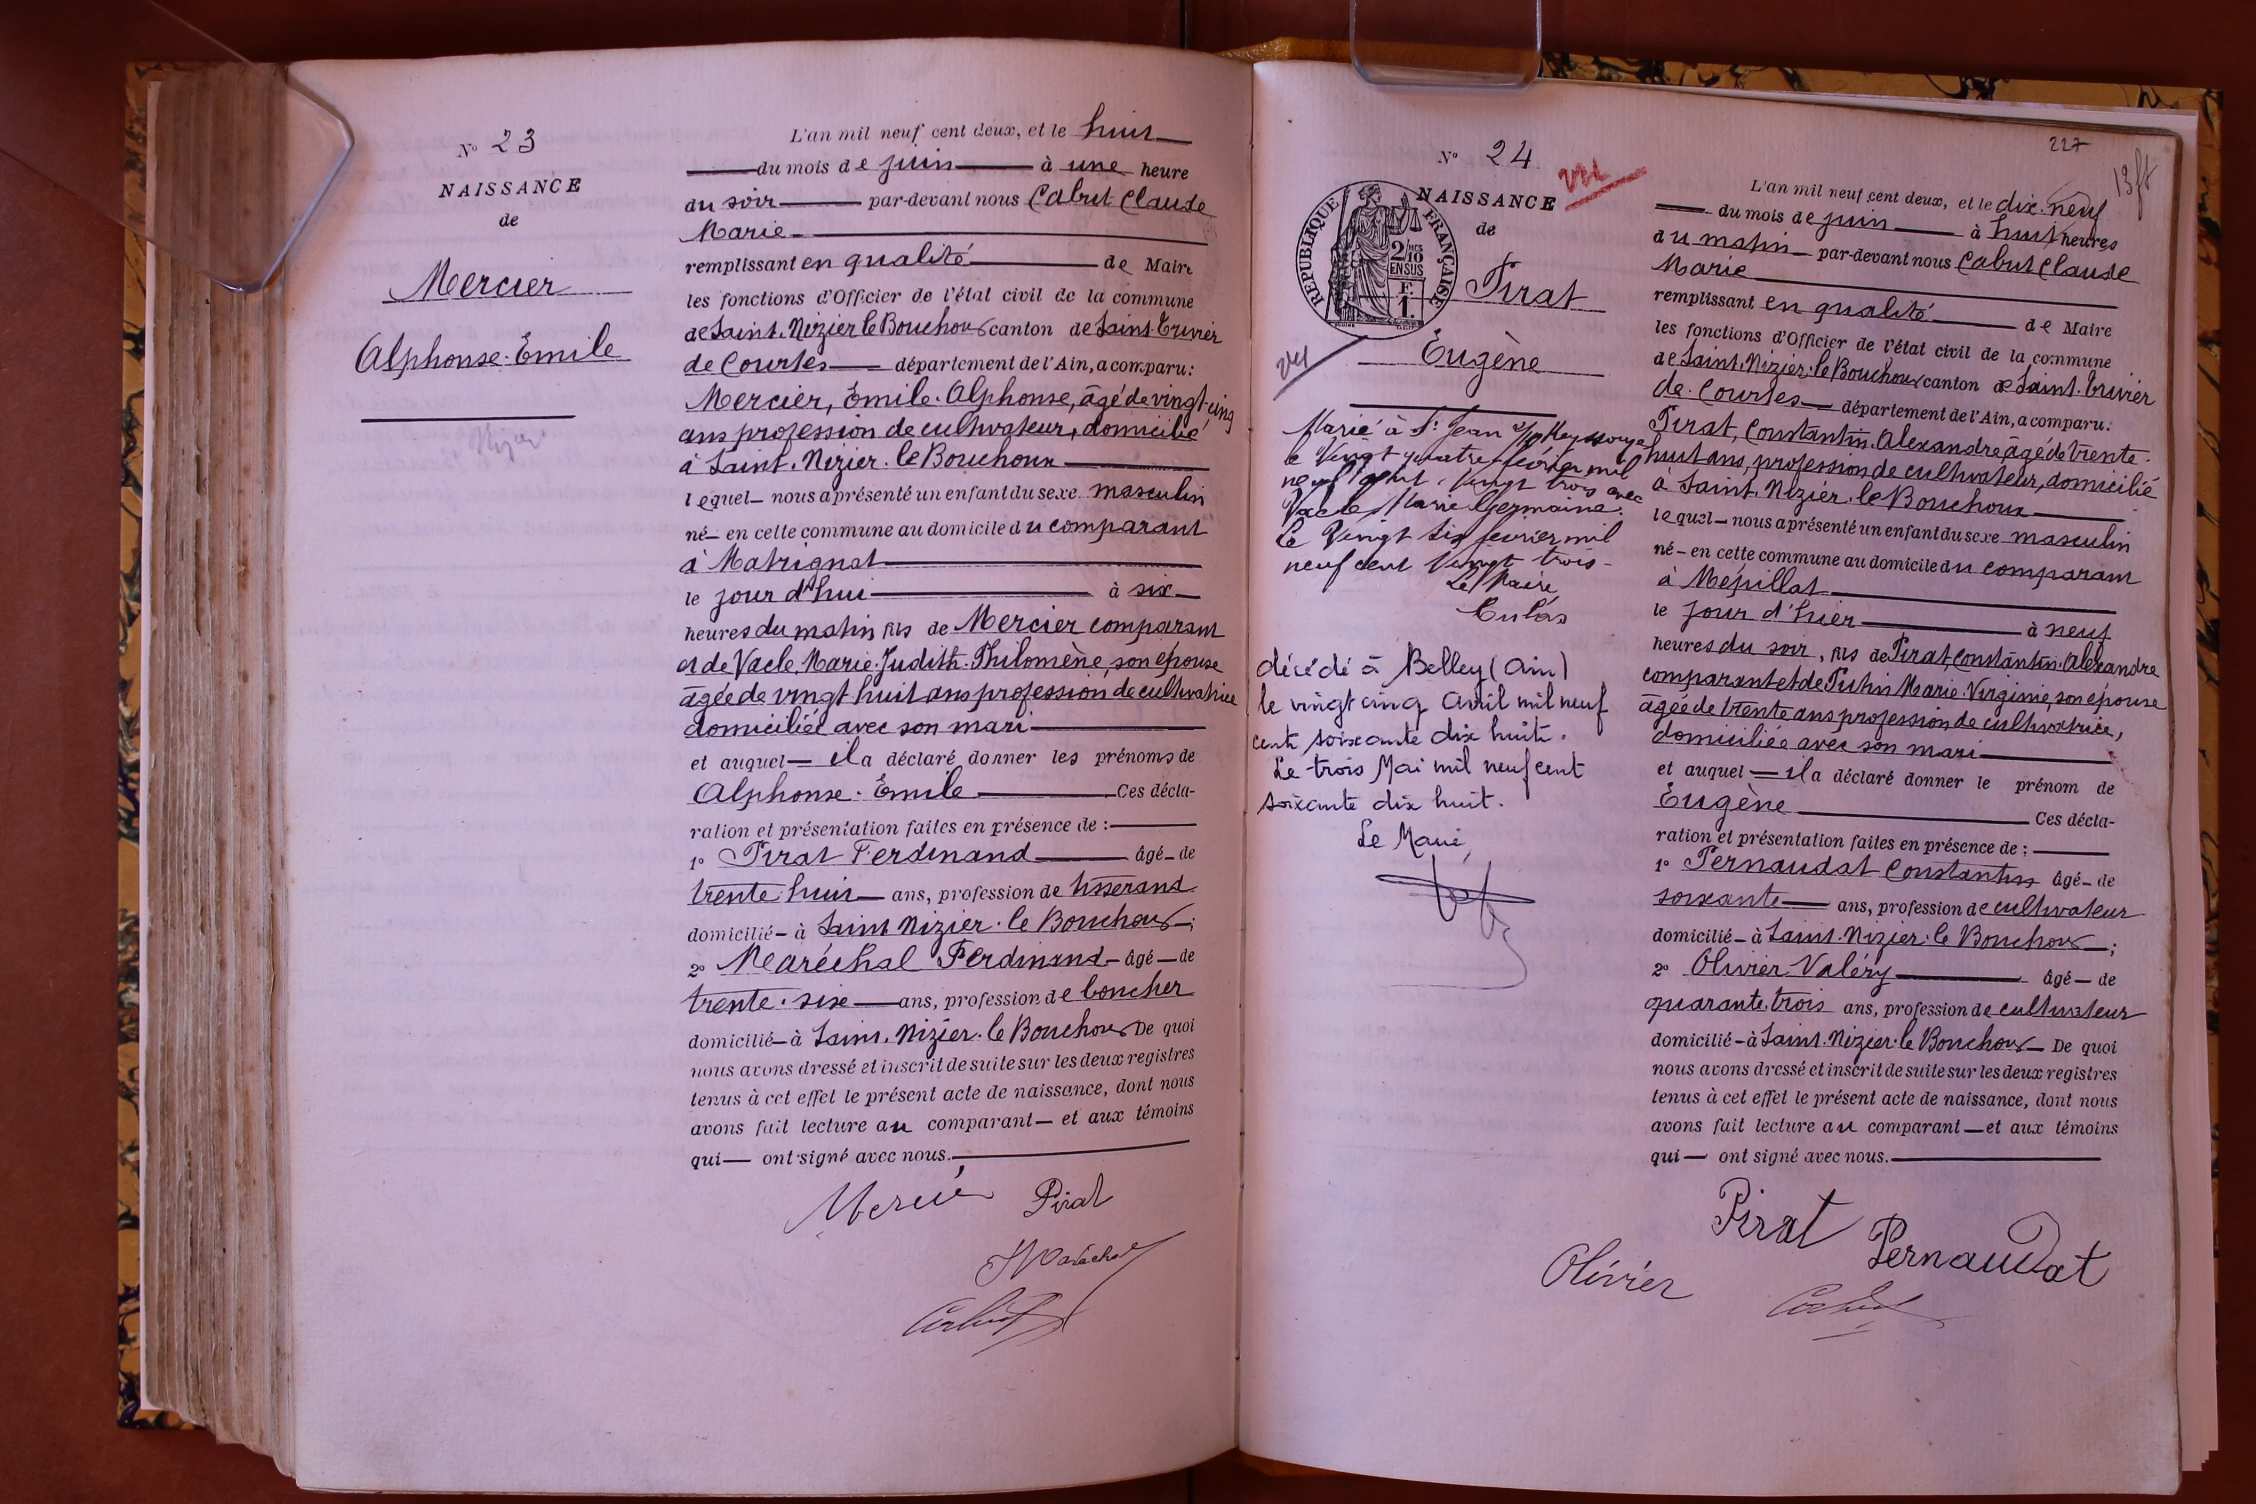 N° 23
NAISSANCE
de
Mercier
Alphonse. Emile
L'an mil neuf cent deux, et le huit
du mois de juin à une heure
du soir par-devant nous Cabut Claude
Marie
remplissant en qualité de Maire
les fonctions d'Officier de l'état civil de la commune
de Saint. Nizier le Bouchoux canton de Saint. Trivier
de Courtes département de l'Ain, a comparu:
Mercier, Emile. Alphonse, âgé de vingt-cinq
ans profession de cultivateur, domicilié
à Saint. Nizier. le Bouchoux
lequel nous a présenté un enfant du sexe masculin
né en cette commune au domicile du comparant
à Matrignat
le jour d'hui à six
heures du matin, fils de Mercier comparant
et de Vacle, Marie. Judith. Philomène, son épouse
âgée de vingt huit ans profession de cultivatrice
domiciliée avec son mari
et auquel il a déclaré donner les prénoms de
Alphonse. Emile Ces décla-
ration et présentation faites en présence de :
1° Pirat Ferdinand âgé de
trente huit ans, profession de tisserand
domicilié à Saint Nizier. le Bouchoux ;
2° Maréchal Ferdinand âgé de
trente. six ans, profession de boucher
domicilié à Saint. Nizier. le Bouchoux De quoi
nous avons dressé et inscrit de suite sur les deux registres
tenus à cet effet le présent acte de naissance, dont nous
avons fait lecture au comparant et aux témoins
qui ont signé avec nous.
Mercier Pirat
Maréchal
Cabut
227
13 ft
N° 24
NAISSANCE
de
RÉPUBLIQUE FRANÇAISE
2/10
EN SUS
F.
1.
Pirat
Eugène
Marié à St Jean s/ Reyssouze
le Vingt quatre février mil
neuf cent Vingt trois avec
Vacle Marie Germaine.
Le Vingt six février mil
neuf cent Vingt trois
Le Maire
décédé à Belley (Ain)
le vingt cinq Avril mil neuf
cent soixante dix huit.
Le trois Mai mil neuf cent
soixante dix huit.
Le Maire,
L'an mil neuf cent deux, et le dix. neuf
du mois de juin à huit heures
du matin par-devant nous Cabut Claude
Marie
remplissant en qualité de Maire
les fonctions d'Officier de l'état civil de la commune
de Saint. Nizier. le Bouchoux canton de Saint. Trivier
de. Courtes département de l'Ain, a comparu:
Pirat, Constantin. Alexandre âgé de trente.
huit ans, profession de cultivateur, domicilié
à Saint. Nizier. le Bouchoux
lequel nous a présenté un enfant du sexe masculin
né en cette commune au domicile du comparant
à Mépillat
le jour d'hier à neuf
heures du soir, fils de Pirat, Constantin. Alexandre
comparant et de Putin Marie. Virginie, son épouse
âgée de trente ans profession de cultivatrice,
domiciliée avec son mari
et auquel il a déclaré donner le prénom de
Eugène Ces décla-
ration et présentation faites en présence de :
1° Pernaudat Constantin âgé de
soixante ans, profession de cultivateur
domicilié à Saint. Nizier. le Bouchoux ;
2° Olivier Valéry âgé de
quarante. trois ans, profession de cultivateur
domicilié à Saint. Nizier. le Bouchoux De quoi
nous avons dressé et inscrit de suite sur les deux registres
tenus à cet effet le présent acte de naissance, dont nous
avons fait lecture au comparant et aux témoins
qui ont signé avec nous.
Pirat Pernaudat
Olivier Cabut